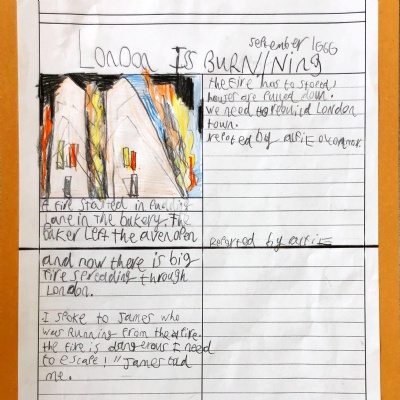 London Is BURN//Ning
September 1666
A fire started in Puding
Lane in the bakery. The
baker left the aven open
and now there is big
fire spreading through
London.
I spoke to James who
was Running from the fire.
the fire is dangerous I need
to escape! " James told
me.
the fire has to stoped,
houses are pulled down.
we need to rebuild London
town.
repoted by alfie oconnor.
Reported by alfie